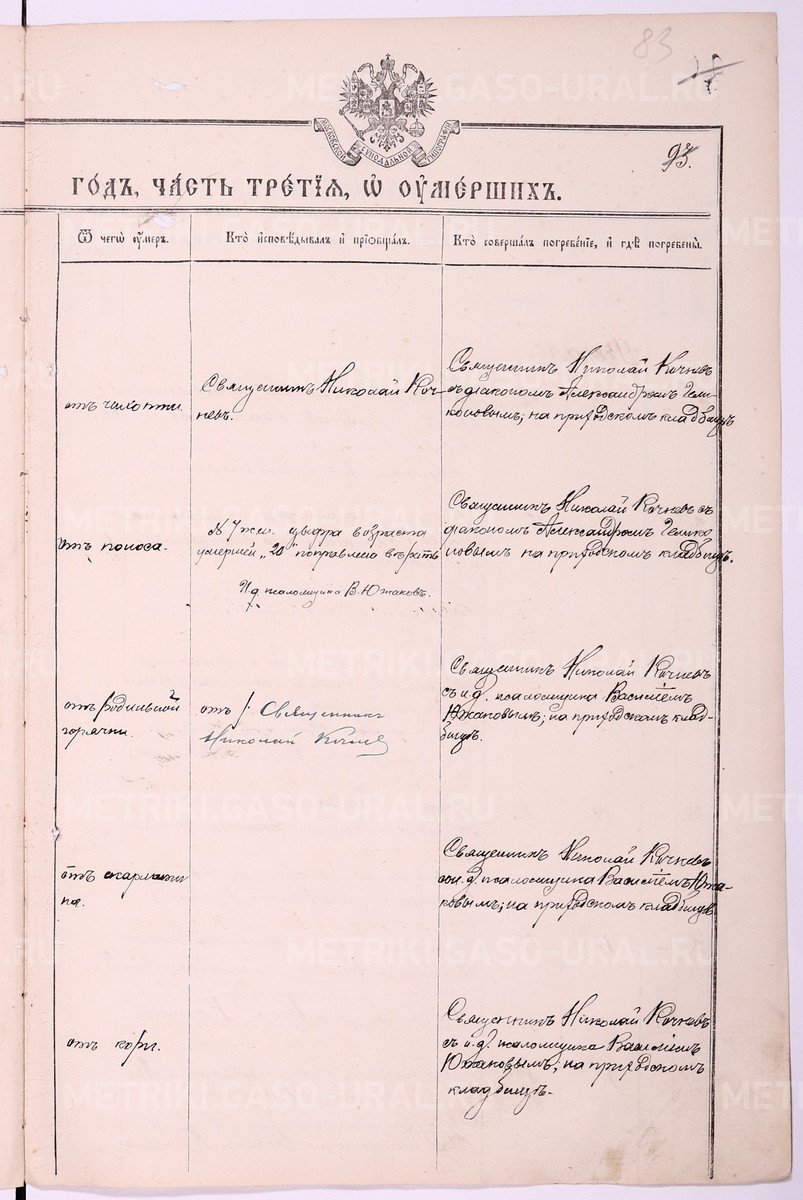 83
93.
МОСКОВСКОЙ СѴНОДАЛЬНОЙ ТИПОГРАФІИ
ГОДЪ, ЧАСТЬ ТРЕТІѦ, Ѿ ОУМЕРШИХЪ.
Ѿ чегѡ оумеръ.
Кто исповѣдывалъ и пріобщалъ.
Кто совершалъ погребеніе, и гдѣ погребены.
отъ чахотки.
Священникъ Николай Коч-
невъ.
Священникъ Николай Кочневъ
съ діакономъ Александромъ Гели-
коновымъ; на приходскомъ кладбищѣ
отъ поноса.
N 7 жен. цыфра возраста
умершей „20" поправлена вѣрить
И д псаломщика В. Южаковъ.
Священникъ Николай Кочневъ съ
діакономъ Александромъ Гелико
новымъ на приходскомъ кладбищѣ.
отъ родильной
горячки.
Священникъ
Николай Кочнев
Священникъ Николай Кочневъ
съ и д. псаломщика Василіемъ
Южаковымъ; на приходскомъ клад-
бищѣ.
отъ скарлати
на.
Священникъ Николай Кочневъ
съ и. д. псаломщика Василіемъ Южа-
ковымъ; на приходскомъ кладбищѣ
отъ кори.
Священникъ Николай Кочневъ
съ и. д. псаломщика Василіемъ
Южаковымъ, на приходскомъ
кладбищѣ.
METRIKI.GASO-URAL.RU